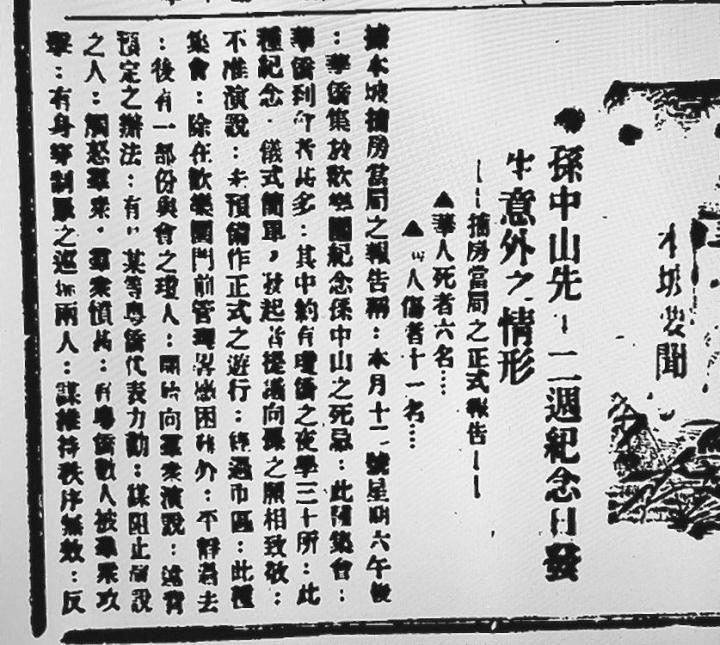 本坡要聞
孫中山先 二週紀念日發
生意外之情形
——捕房當局之正式報告——
▲華人死者六名…
▲ 人傷者十一名…
據本坡捕房當局之報告稱:本月十二號星期六午後
:華僑集於歡樂園紀念孫中山之死忌:此種集會:
華僑到 者甚多:其中約有瓊僑之夜學三十所:此
種紀念·儀式簡單,發起者提議向孫之願相致敬:
不准演說:未預備作正式之遊行:經過市區:此種
集會:除在歡樂園門前管理 困難外:平靜過去
:後有一部份與會之瓊人:開始向羣衆演說:違背
預定之辦法:有 某等粵僑代表力勸:謀阻止演說
之人:觸怒羣衆,羣衆憤甚:有粵僑數人被羣衆攻
擊:有身穿制服之巡 兩人:謀維持秩序無效:反